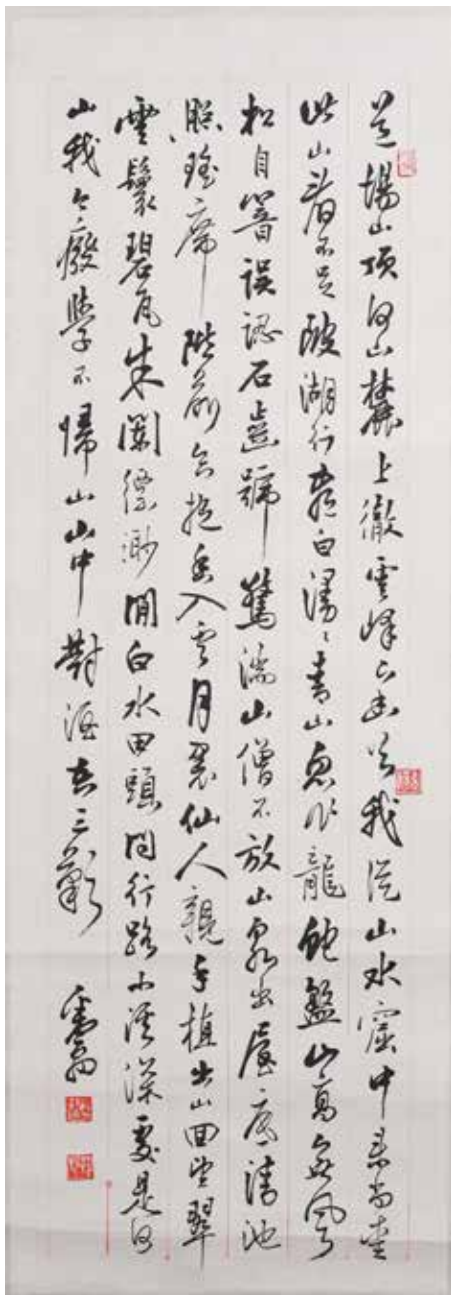 道場山頂何山麓上徹雲峰下幽谷我從山水窟中來尚愛
此山看不足陂湖行盡白漫〻青山忽作龍蛇盤山高無風
松自響誤認石齒號驚湍山僧不放山泉出屋底清池
照瑤席階前合抱香入雲月裏仙人親手植出山回望翠
雲鬟碧瓦朱闌縹緲間白水田頭問行路小溪深處是何
山我今廢學不歸山山中對酒空三歎